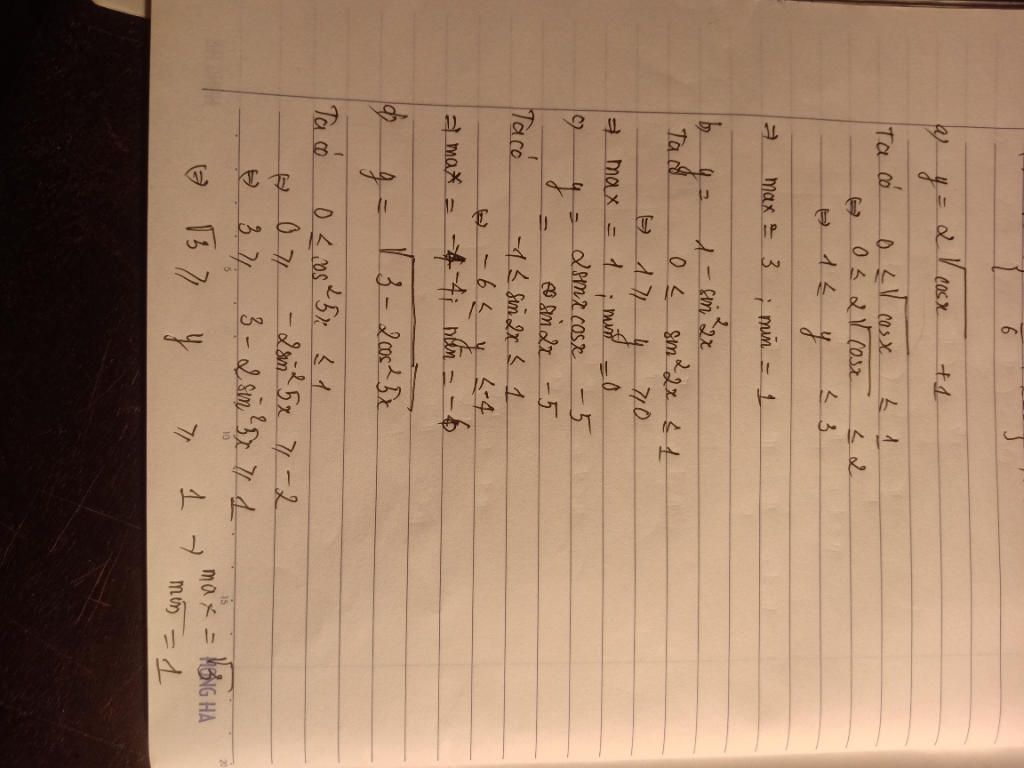 6
a) y = 2√cosx + 1
Ta có 0 ≤ √cosx ≤ 1
⇔ 0 ≤ 2√cosx ≤ 2
⇔ 1 ≤ y ≤ 3
⇒ max = 3 ; min = 1
b, y = 1 - sin²2x
Ta có 0 ≤ sin²2x ≤ 1
⇔ 1 ⩾ y ⩾ 0
⇒ max = 1 ; min = 0
c) y = 2sinx cosx - 5
= sin2x - 5
Ta có -1 ≤ sin2x ≤ 1
⇔ -6 ≤ y ≤ -4
⇒ max = -4 ; min = -6
d) y = √3 - 2cos²5x
Ta có 0 ≤ cos²5x ≤ 1
⇔ 0 ⩾ -2sin²5x ⩾ -2
⇔ 3 ⩾ 3 - 2sin²5x ⩾ 1
⇔ √3 ⩾ y ⩾ 1 → max = √3
min = 1
HONG HA